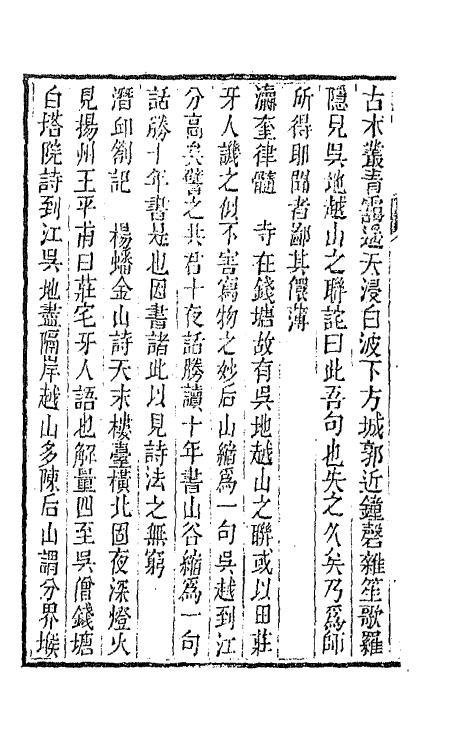 古木叢青靄遥天浸白波下方城郭近鐘磬雜笙歌羅
隱見吳地越山之聯詫曰此吾句也失之久矣乃爲師
所得耶聞者鄙其儇薄
瀛奎律髓　寺在錢塘故有吳地越山之聯或以田莊
牙人譏之似不害寫物之妙后山縮爲一句吳越到江
分高矣譬之共君十夜話勝讀十年書山谷縮爲一句
話勝十年書是也因書諸此以見詩法之無窮
潛邱劄記　楊蟠金山詩天末樓臺橫北固夜深燈火
見揚州王平甫曰莊宅牙人語也解量四至吳僧錢塘
白塔院詩到江吳地盡隔岸越山多陳后山謂分界堠